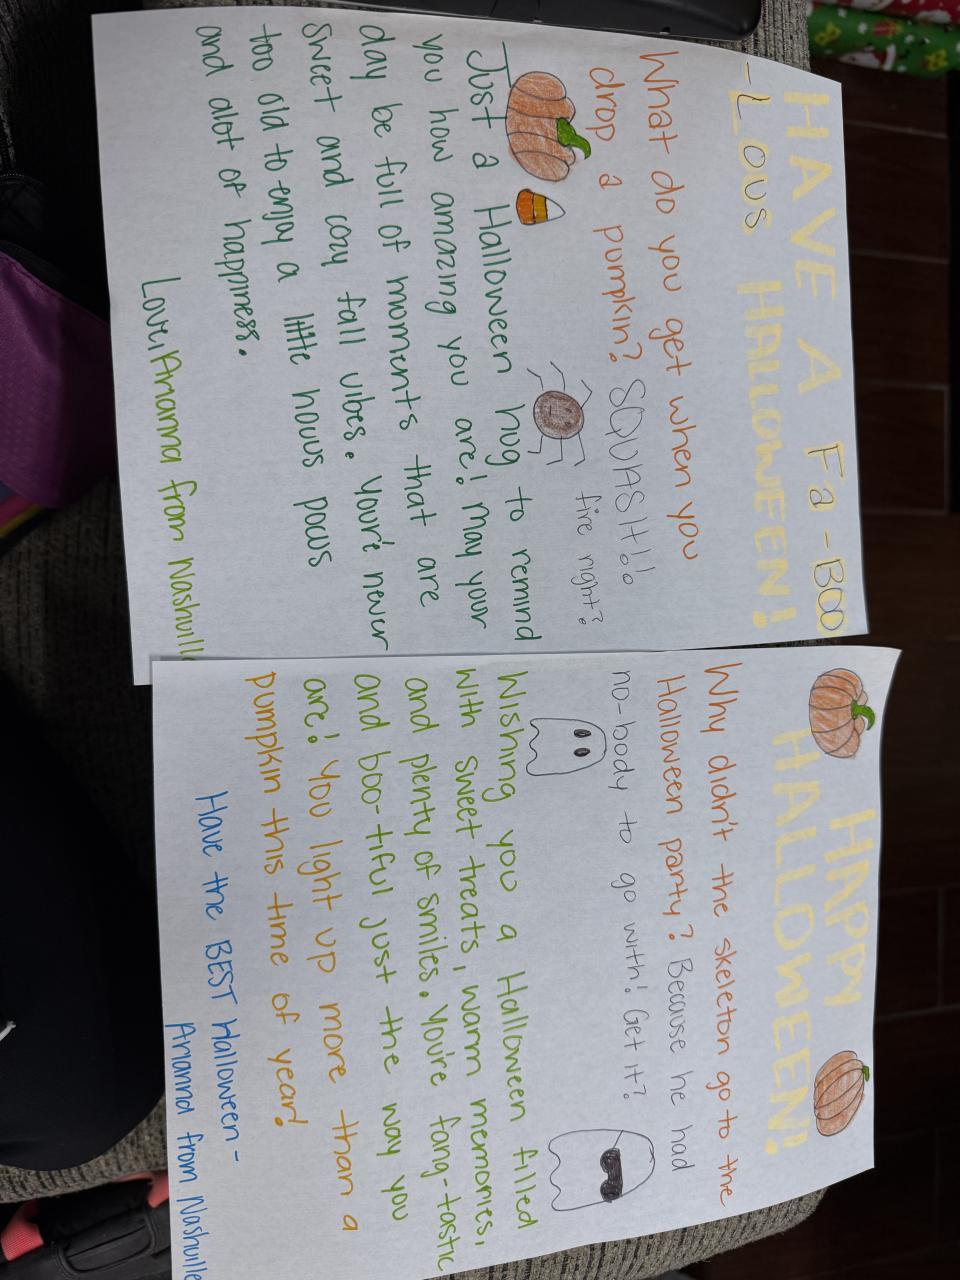 HAVE A Fa-BOO
-Lous HALLOWEEN!
What do you get when you
drop a pumpkin? SQUASH!!
fire right?
Just a Halloween hug to remind
you how amazing you are! May your
day be full of moments that are
sweet and cozy fall vibes. Your'e never
too old to enjoy a little houus pocus
and alot of happiness.
Love, Arianna from Nashville
HAPPY
HALLOWEEN!
Why didn't the skeleton go to the
Halloween party? Because he had
no-body to go with! Get it?
Wishing you a Halloween filled
with sweet treats, warm memories,
and plenty of smiles. You're fang-tastic
and boo-tiful just the way you
are! You light up more than a
pumpkin this time of year!
Have the BEST Halloween-
Arianna from Nashville